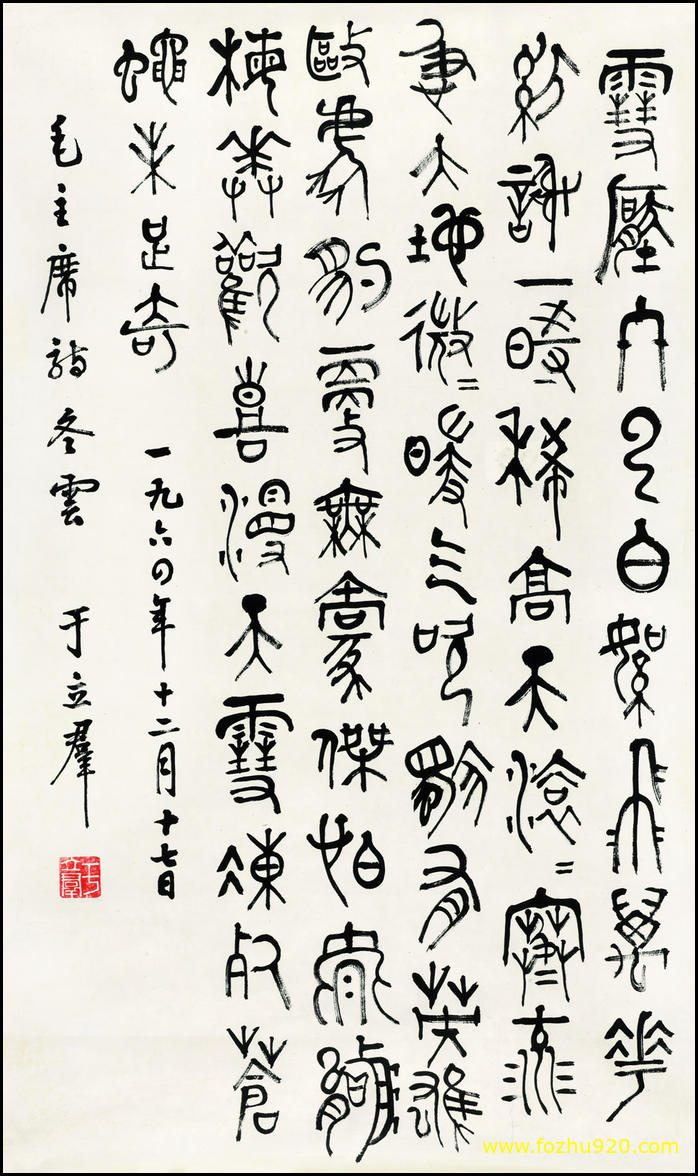 雪壓冬云白絮飛萬花
紛謝一時稀高天滾〻寒流
急大地微〻暖气吹獨有英雄
敺虎豹更無豪傑怕熊羆
梅花歡喜漫天雪凍死蒼
蠅未足奇 一九六四年十二月十七日
毛主席詩冬雲 于立羣
于立羣
www.fozhu920.com